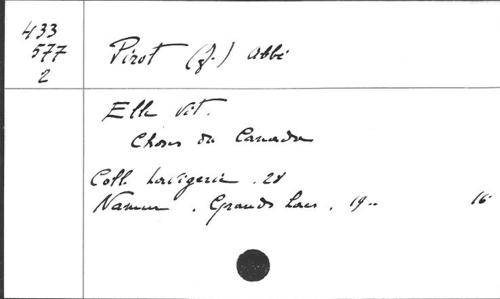 433
577
2
Pirot (J.) Abbé
Elle vit.
Choses du Canada
Coll. Lavigerie. 28
Namur. Grands Lacs. 19.. 16